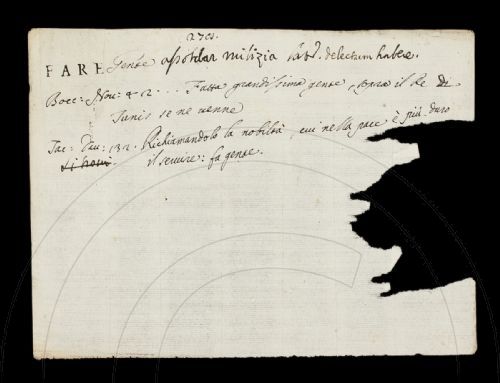 2701.
FARE Gente assoldar milizia lat. delectum habere.
Bocc: Nov: 42. .. Fatta grandissima gente, sopra il Re di
Tunis se ne venne
Tac: Dav: 132. Richiamandolo la nobiltà, cui nella pace è più duro
il servire: fa gente.